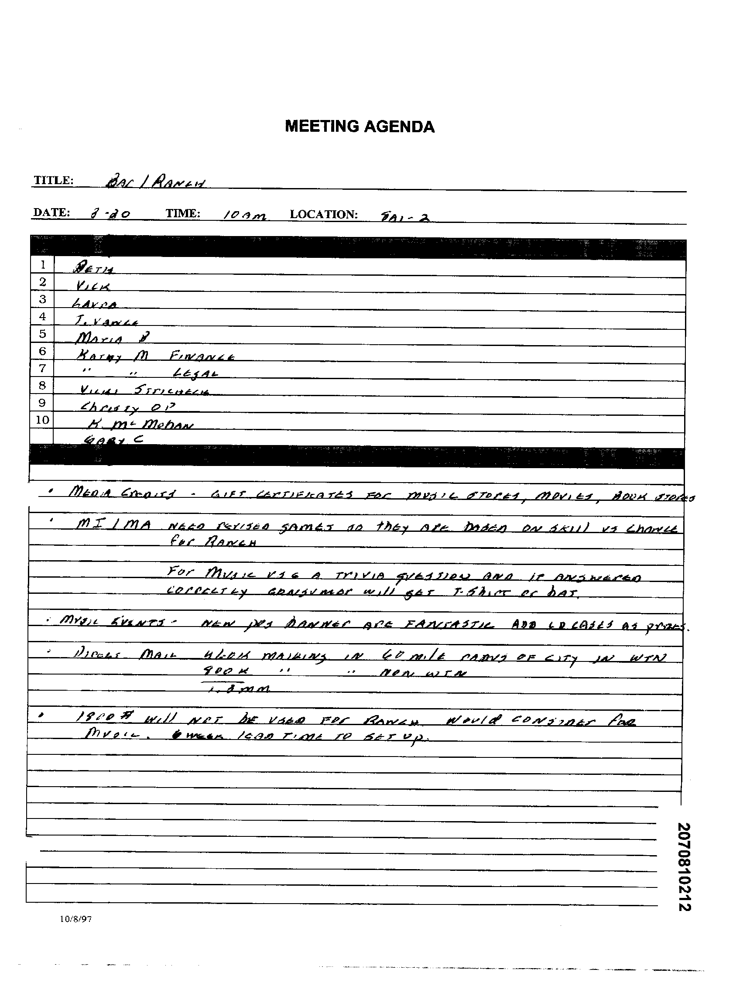 MEETING AGENDA
TITLE: BAC / RANCH
DATE: 3-20 TIME: 10 am LOCATION: 5A1-2
1 BETH
2 VICK
3 LAURA
4 T. VANCE
5 MARIA B
6 KATHY M FINANCE
7 " " LEGAL
8 VICKI
9 Christy OP
10 K. McMohan
GARY C
• MEDIA CREDITS - GIFT CERTIFICATES FOR MUSIC STORES, MOVIES, BOOK STORES
• MI / MA NEED REVISED GAMES SO they ARE BASED ON SKILL VS CHANCE
for RANCH
FOR MUSIC USE A TRIVIA QUESTION AND IF ANSWERED
CORRECTLY CONSUMER will GET T-Shirt or hAT.
• MUSIC EVENTS - NEW POS BANNER ARE FANTASTIC ADD CD CASES AS prizes.
• DIRECT MAIL MAILING IN 60 mile RADIUS OF CITY IN WTN
900K " " NON WTN
1.3mm
• 1800# will NOT BE USED FOR RANCH. Would CONSIDER FOR
MUSIC. 6 WEEK lead TIME TO SET UP.
2070810212
10/8/97